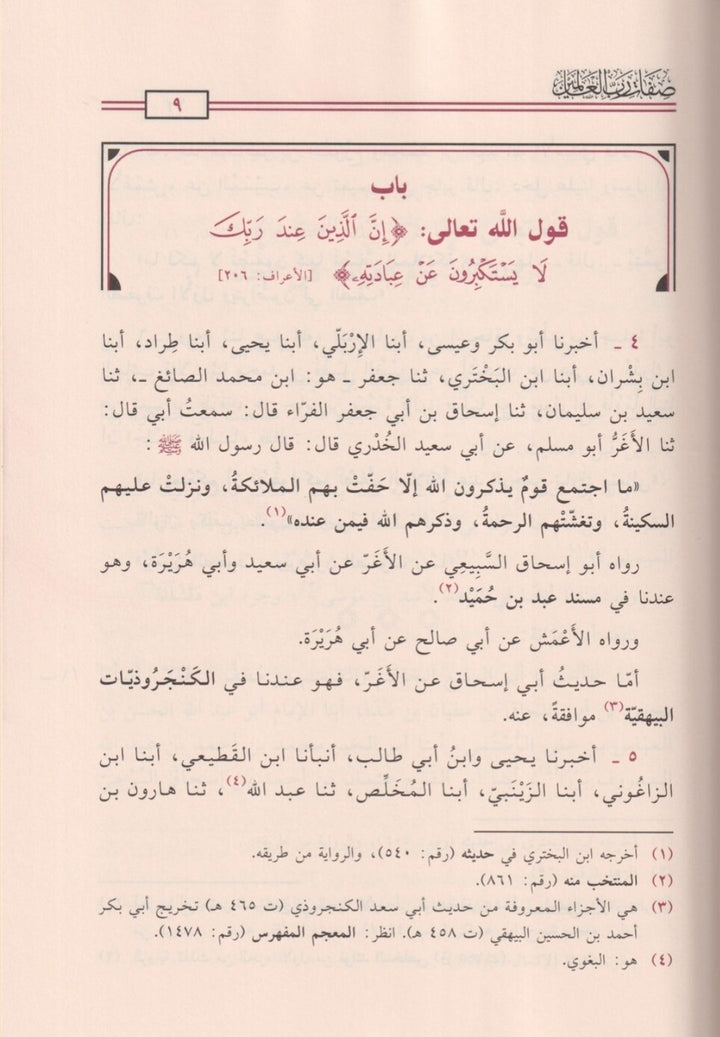 صفات رب العالمين
٩
باب
قول الله تعالى: ﴿إِنَّ الَّذِينَ عِندَ رَبِّكَ
لَا يَسْتَكْبِرُونَ عَنْ عِبَادَتِهِۦ﴾ [الأعراف: ٢٠٦]
٤ ـ أخبرنا أبو بكر وعيسى، أبنا الإِرْبَلّي، أبنا يحيى، أبنا طِراد، أبنا
ابن بِشْران، أبنا ابن البَخْتَري، ثنا جعفر ـ هو: ابن محمد الصائغ ـ، ثنا
سعيد بن سليمان، ثنا إسحاق بن أبي جعفر الفرّاء قال: سمعتُ أبي قال:
ثنا الأَغَرُّ أبو مسلم، عن أبي سعيد الخُدْري قال: قال رسول الله ﷺ:
«ما اجتمع قومٌ يذكرون الله إلّا حَفّتْ بهم الملائكةُ، ونزلتْ عليهم
السكينةُ، وتغشّتْهم الرحمةُ، وذكرهم الله فيمن عنده»(١).
رواه أبو إسحاق السَّبِيعِي عن الأَغَرّ عن أبي سعيد وأبي هُرَيْرَة، وهو
عندنا في مسند عبد بن حُمَيْد(٢).
ورواه الأَعْمَش عن أبي صالح عن أبي هُرَيْرَة.
أمّا حديثُ أبي إسحاق عن الأَغَرّ، فهو عندنا في الكَنْجَرُوذيّات
البيهقيّة(٣) موافقةً، عنه.
٥ ـ أخبرنا يحيى وابنُ أبي طالب، أنبأنا ابن القَطيعي، أبنا ابن
الزاغُوني، أبنا الزَيْنَبيّ، أبنا المُخَلِّص، ثنا عبد الله(٤)، ثنا هارون بن
(١) أخرجه ابن البختري في حديثه (رقم: ٥٤٠)، والرواية من طريقه.
(٢) المنتخب منه (رقم: ٨٦١).
(٣) هي الأجزاء المعروفة من حديث أبي سعد الكنجروذي (ت ٤٦٥ هـ) تخريج أبي بكر
أحمد بن الحسين البيهقي (ت ٤٥٨ هـ). انظر: المعجم المفهرس (رقم: ١٤٧٨).
(٤) هو: البغوي.